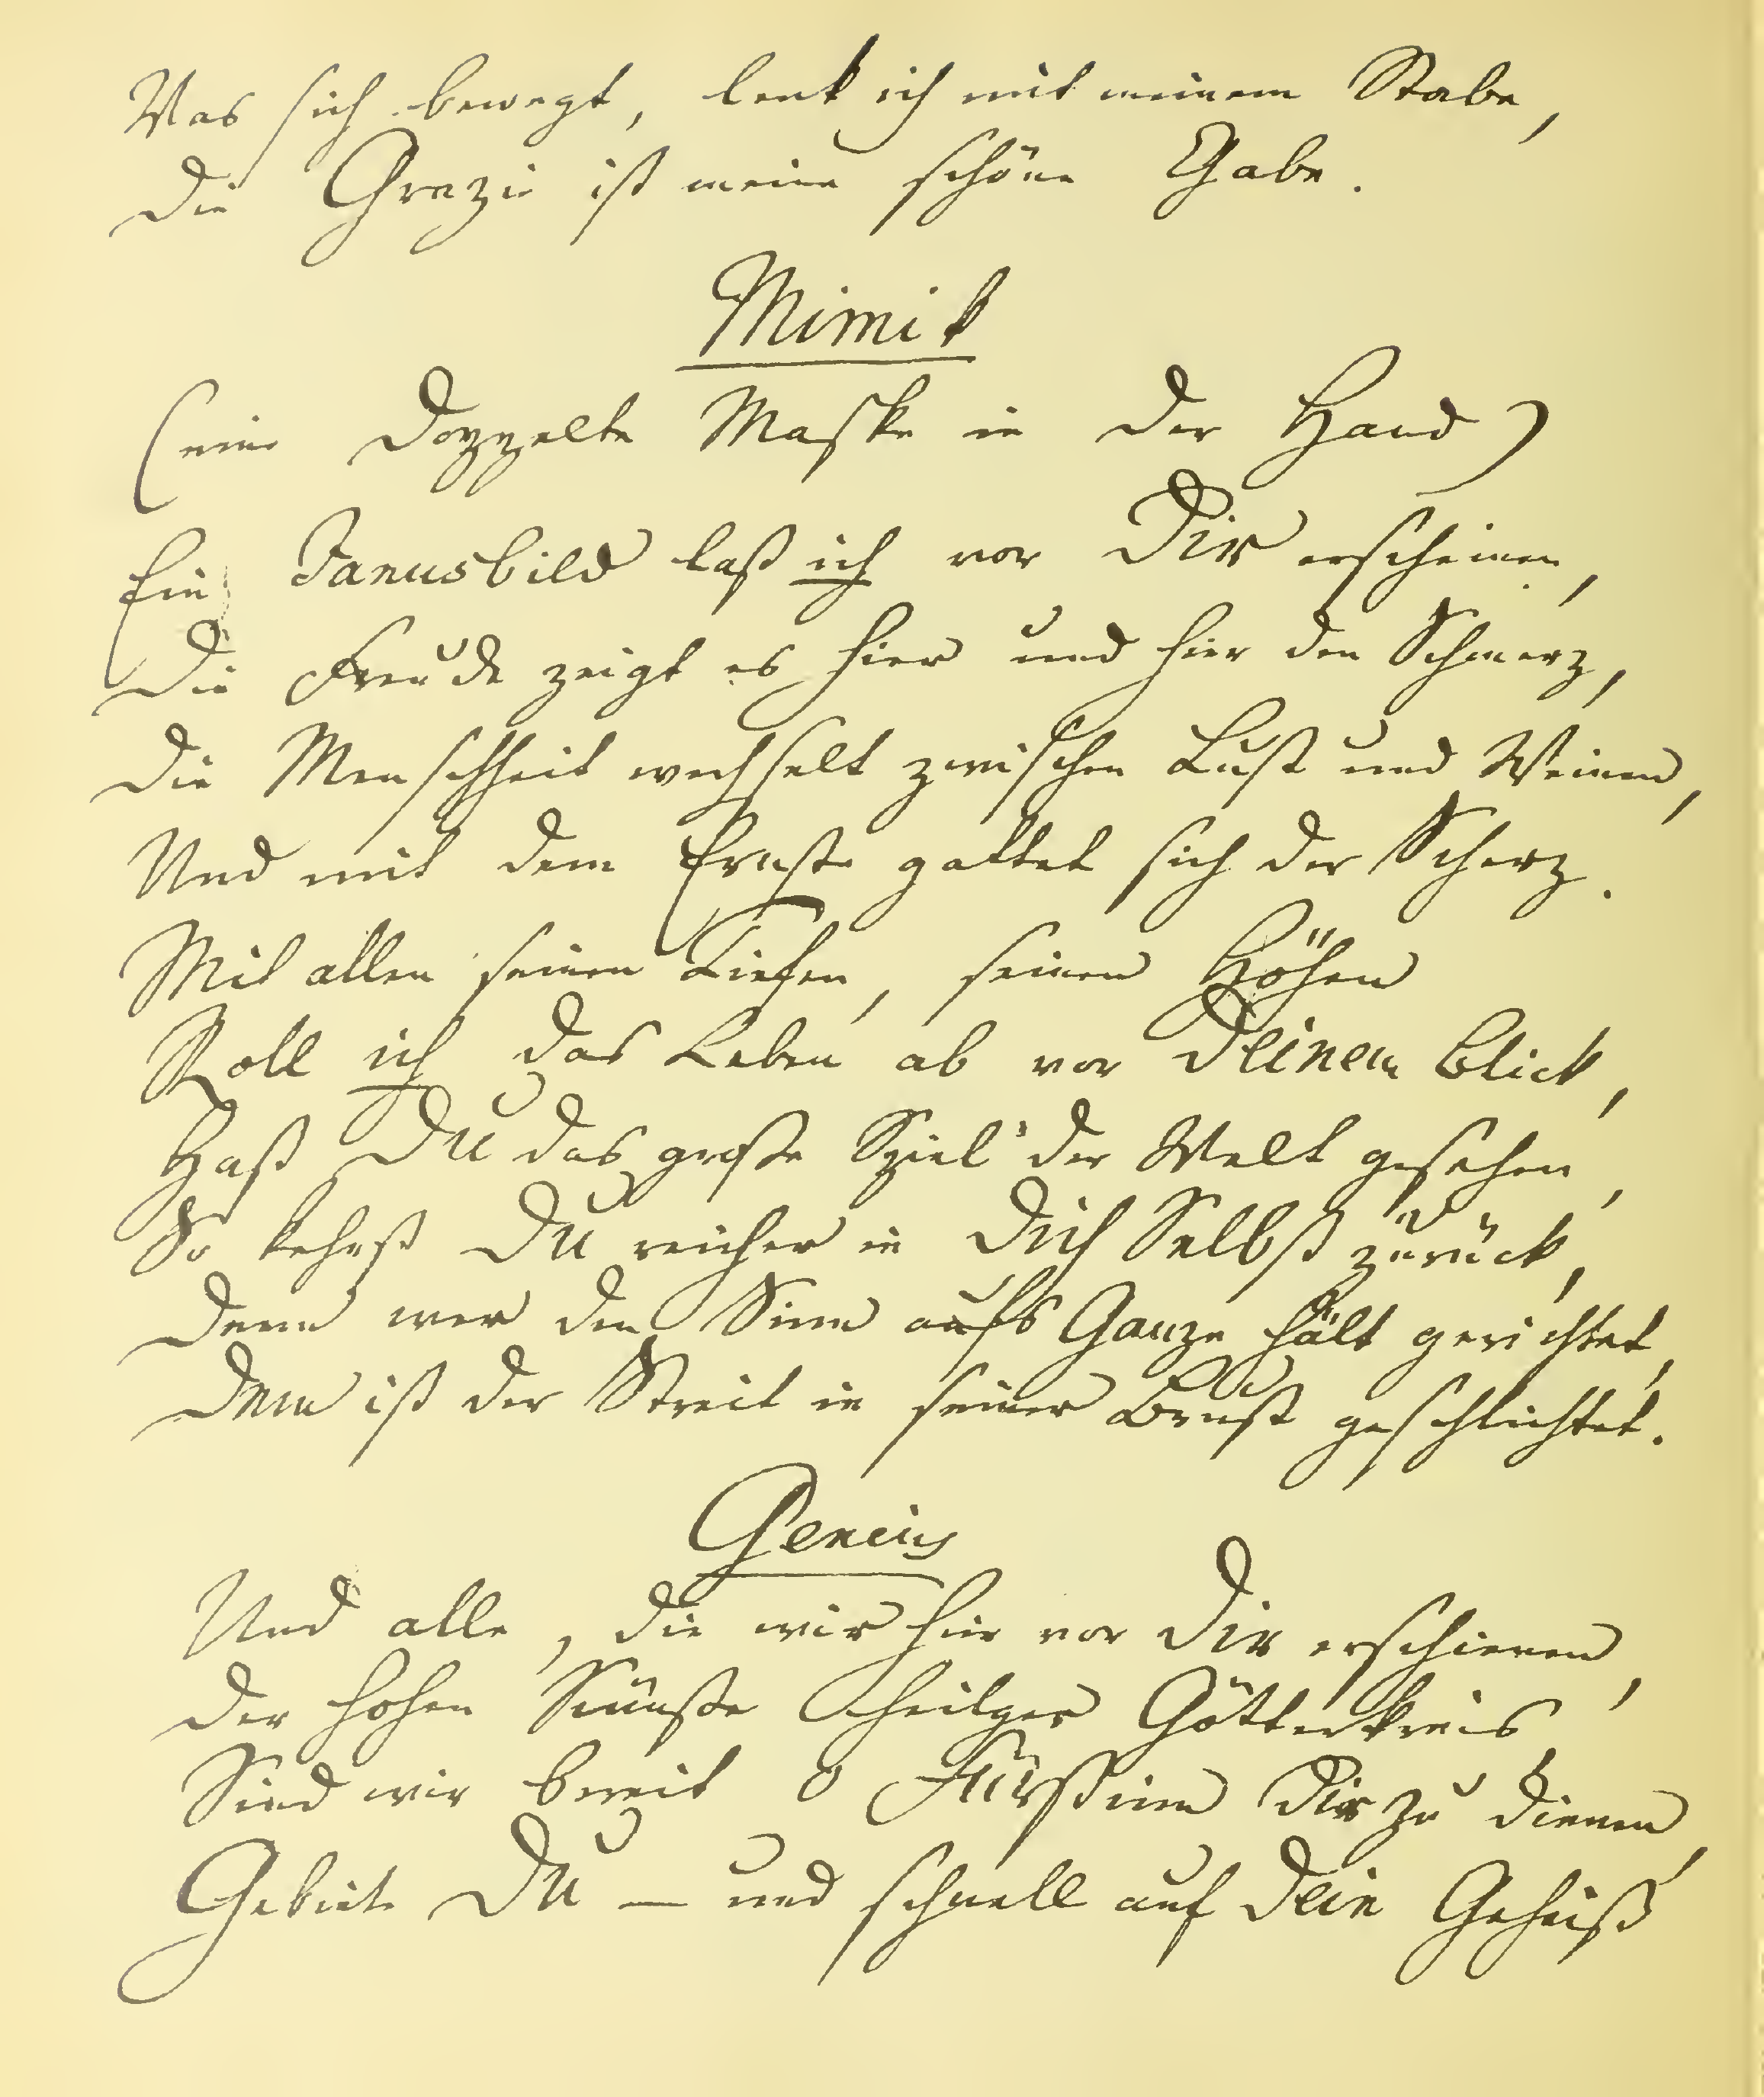 Was sich bewegt, lenk ich mit meinem Stabe,
Die Grazie ist meine schöne Gabe.
Mimik
(eine doppelte Maske in der Hand)
Ein Janusbild laß ich vor Dir erscheinen,
Die Freude zeigt es hier und hier den Schmerz,
Die Menschheit wechselt zwischen Lust und Weinen,
Und mit dem Ernste gattet sich der Scherz.
Mit allen seinen Tiefen, seinen Höhen
Roll ich das Leben ab vor Deinem Blick,
Hast Du das große Spiel der Welt gesehen,
So kehrst Du reicher in Dich Selbst zurück,
Denn wer den Sinn aufs Ganze hält gerichtet,
Dem ist der Streit in seiner Brust geschlichtet.
Genius
Und alle, die wir hier vor Dir erschienen,
Der hohen Künste heilger Götterkreis,
Sind wir bereit o Fürstinn Dir zu dienen,
Gebiete Du — und schnell auf Dein Geheiß